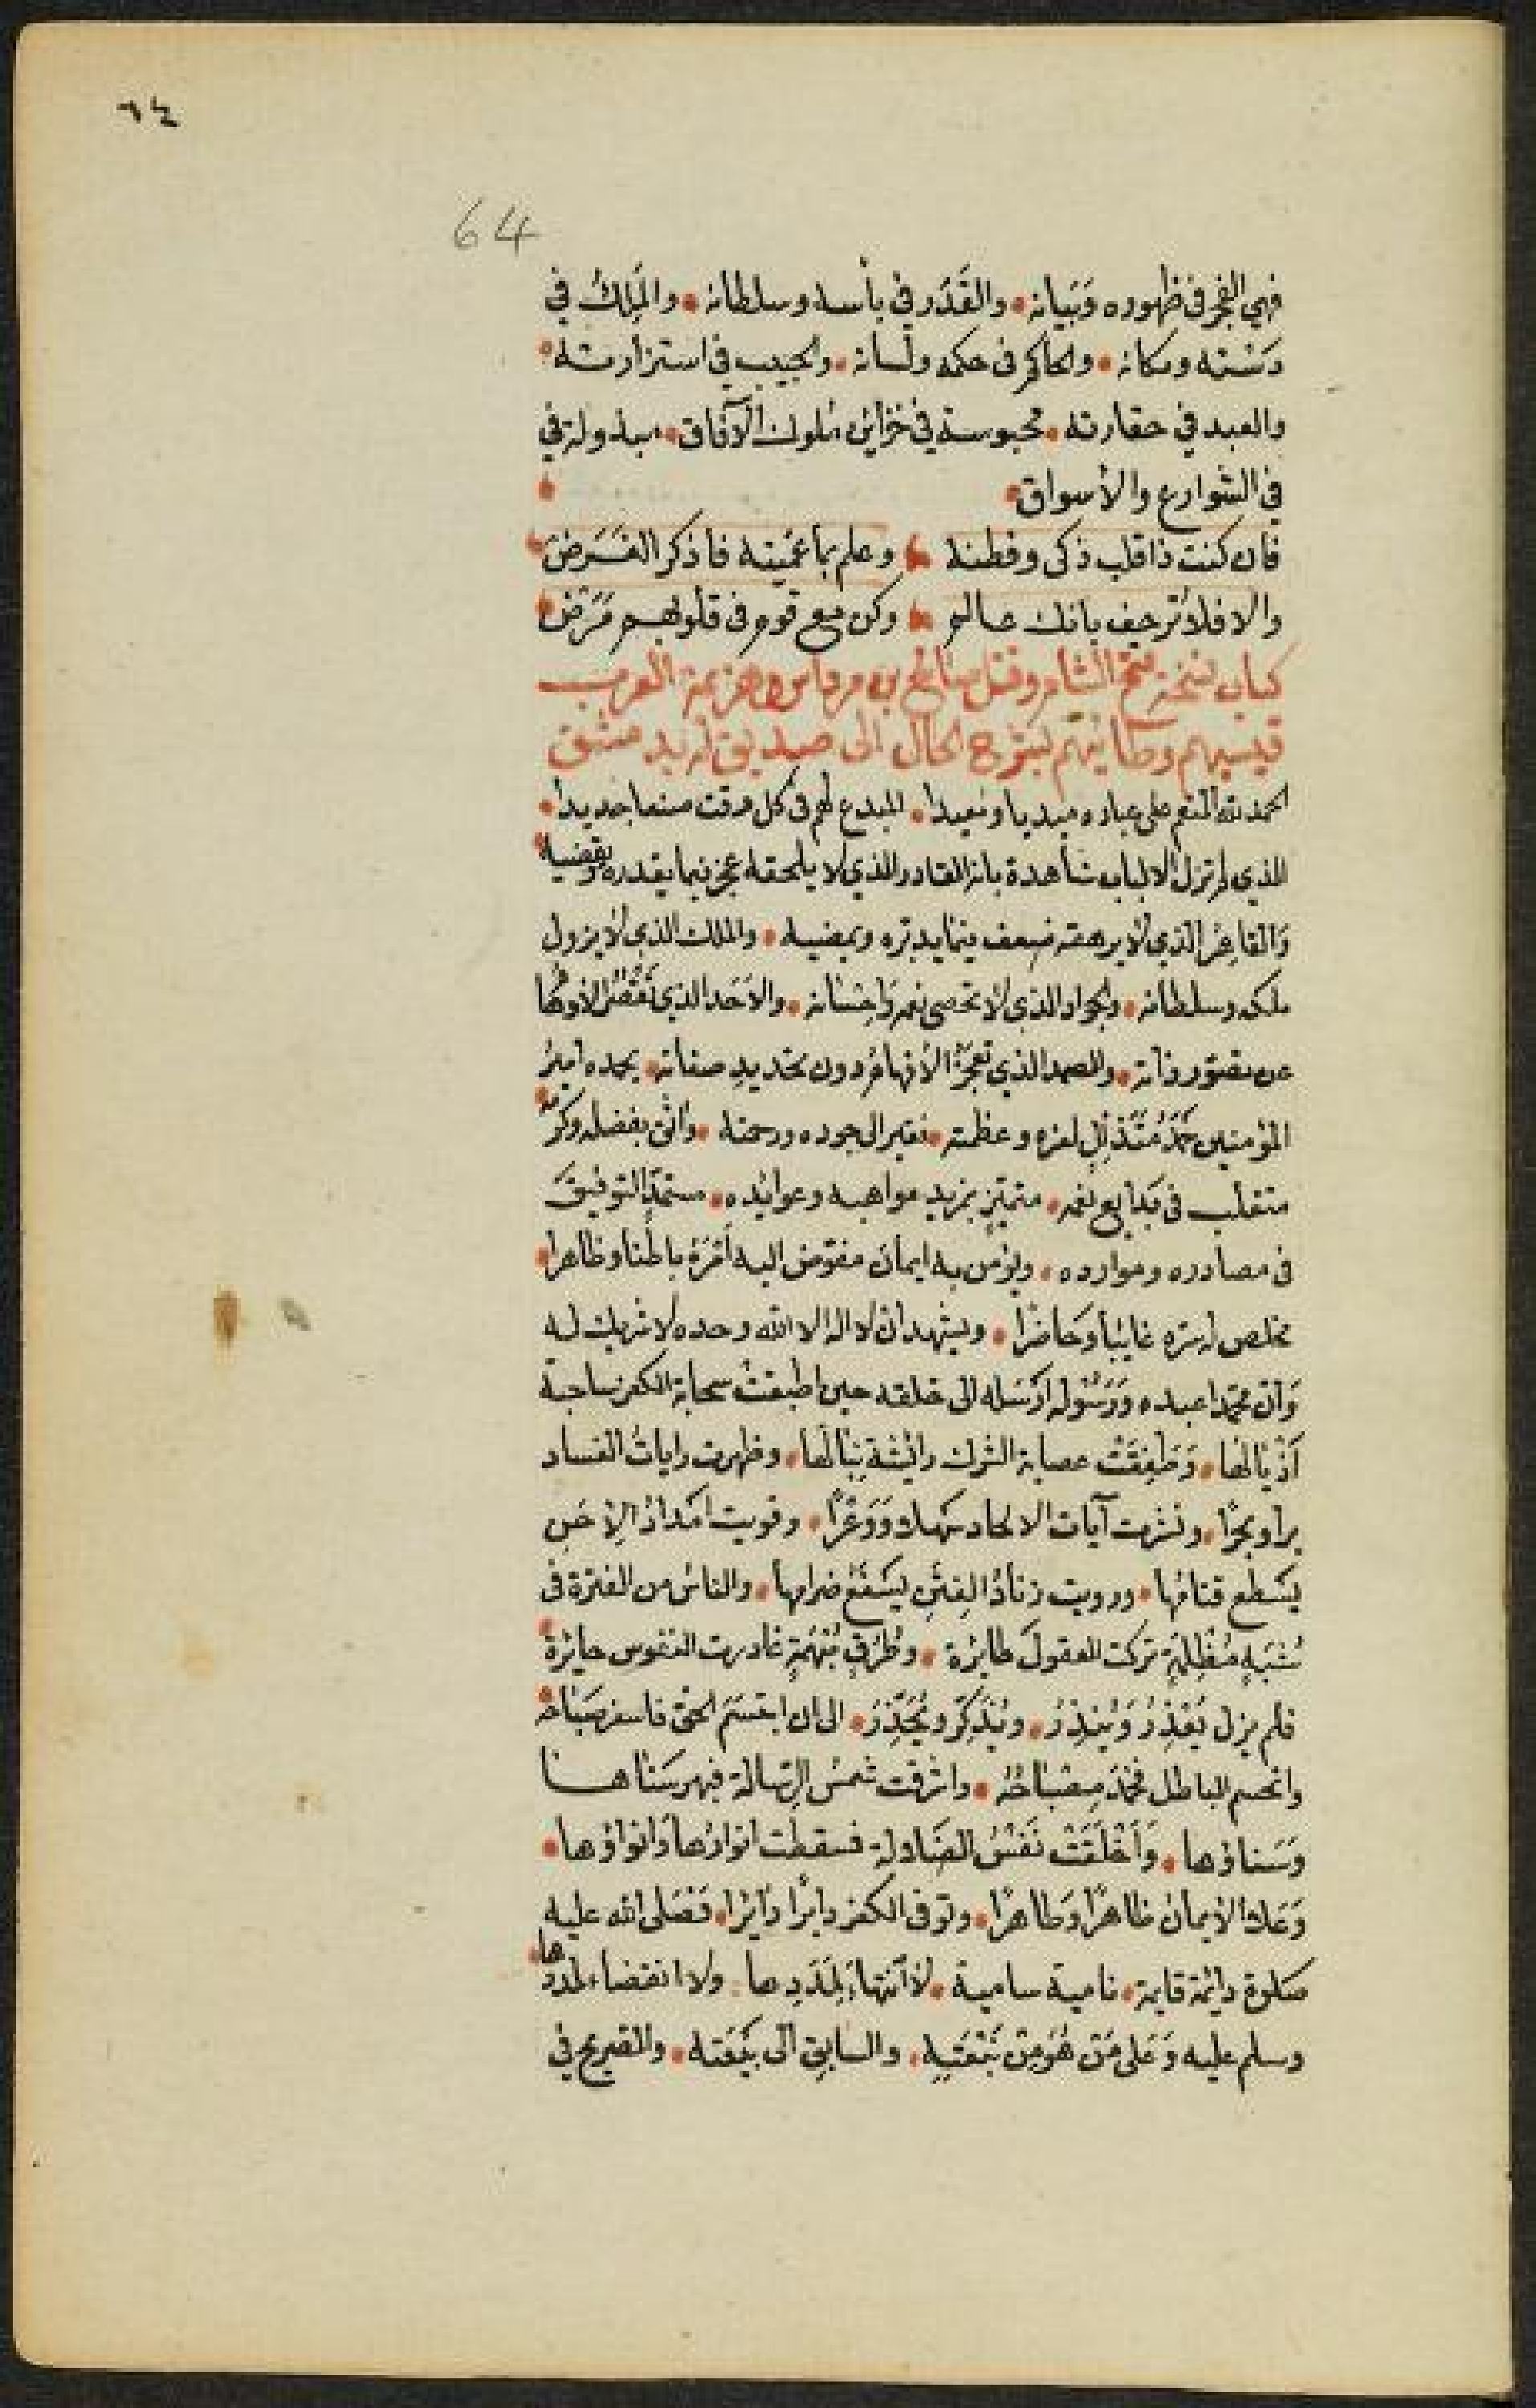 ٦٤
64
فهي الفجر في ظهوره وَبَيانه • والقَدَر في بأسه وسلطانه • والمَلِكُ في
دَسْته ومكانه • والحاكم في حكمه ولسانه • والحبيب في استزارته •
والعبد في حقارته • محبوسة في خزاين ملوك الآفاق • مبذولة في
في الشوارع والأسواق •
فان كنت ذا قلب ذكى وفطنة وعلم بما عمَّيته فاذكر الغَرَض
والا فلا ترجف بانك عالم وكن مع قوم في قلوبهم مَرَض
كتاب نسخة فتح الشام وقتل صالح بن مرداس وهزيمة العرب
قيسيهم وطائيهم بشرح الحال الى صديق له بدمشق
الحمد لله المنعم على عباده مبديا ومعيدا • المبدع لهم في كل وقت صنعا جديدا •
الذي لم تزل الالباب شاهدة بانه القادر الذي لا يلحقه عجز فيما يقدره ويقضيه •
وَالقاهِر الذي لا يرهقه ضعف فيما يدبّره ويمضيه • والملك الذي لا يزول
ملكه وسلطانه • والجواد الذي لا تحصى نعمه وَاِحسَانه • والاَحَد الذي تَقْصُر الأوهَا
عن تصوّر ذاته • والصمد الذي تعجزُ الأفهامُ دون تحديدِ صفاته • يحمده اميرُ
المؤمنين حَمْدُ مُتَذلِّلٍ لعزه وعظمته • فقير الى جوده ورحمته • واثق بفضله وكر مه •
متقلب في بَدايع نعمه • متميّزٍ بمزيد مواهبه وعوايده • مستمدٍّ التوفيقَ
في مصادره وموارده • ويؤمن به ايمان مفوّض اليه اَمْرَهُ باطنا وظاهرا •
مخلص له سرّه غايبا وَحَاضرًا • ويشهد ان لا اله الا الله وحده لا شريك له
وَانّ محمّدا عبده وَرَسُوله ارْسَله الى خلقه حين اطبقت سحابة الكفر ساحبة
اَذْيالها • وَطَفِقَتْ عصابة الشرك رائشة نبالَها • وظهرت راياتُ الفساد
برا وبحرًا • ونشرت آيات الالحاد سَهلا وَوَعْرًا • وقويت امدادُ الاِحَنِ
ليسطع قتامُها • ووريت زنادُ الفِتَنِ ليسفَعَ ضرامها • والناسُ من الفترة في
شُبَهٍ مُظْلِمَةٍ تركت العقولَ طايرة • وطُرُقٍ مُبْهَمَةٍ غادرت النفوس حايرة •
فلم يزل يُعْذِرُ وَيُنذِرُ • ويُذكِّر ويُحَذِّرُ • الى ان ابتسَمَ الحقّ فاسفر صَبَاحُه •
وانحسم الباطل فخمَدَ مصْبَاحُه • واشرقت شمسُ الرِّسالة فبهر سَناها
وَسَناؤها • وَاَخْلَقَتْ نَفسُ الضَلالة فسقطت انوارُها وَانواؤها •
وَعَلاَ الايمان ظاهرًا وَطاهرًا • وتوفى الكفر دابرًا دَاثرًا • فَصَلى الله عليه
صَلوة دائمة قايمة • نامية سامية • لا انتهاءَ لِمَدَدِها • ولا انقضاء لمدد ها •
وسلم عليه وَعَلى مَن هُوَ مِن نَبْعَتِهِ • والسابق الى بَيْعَته • والقريع في